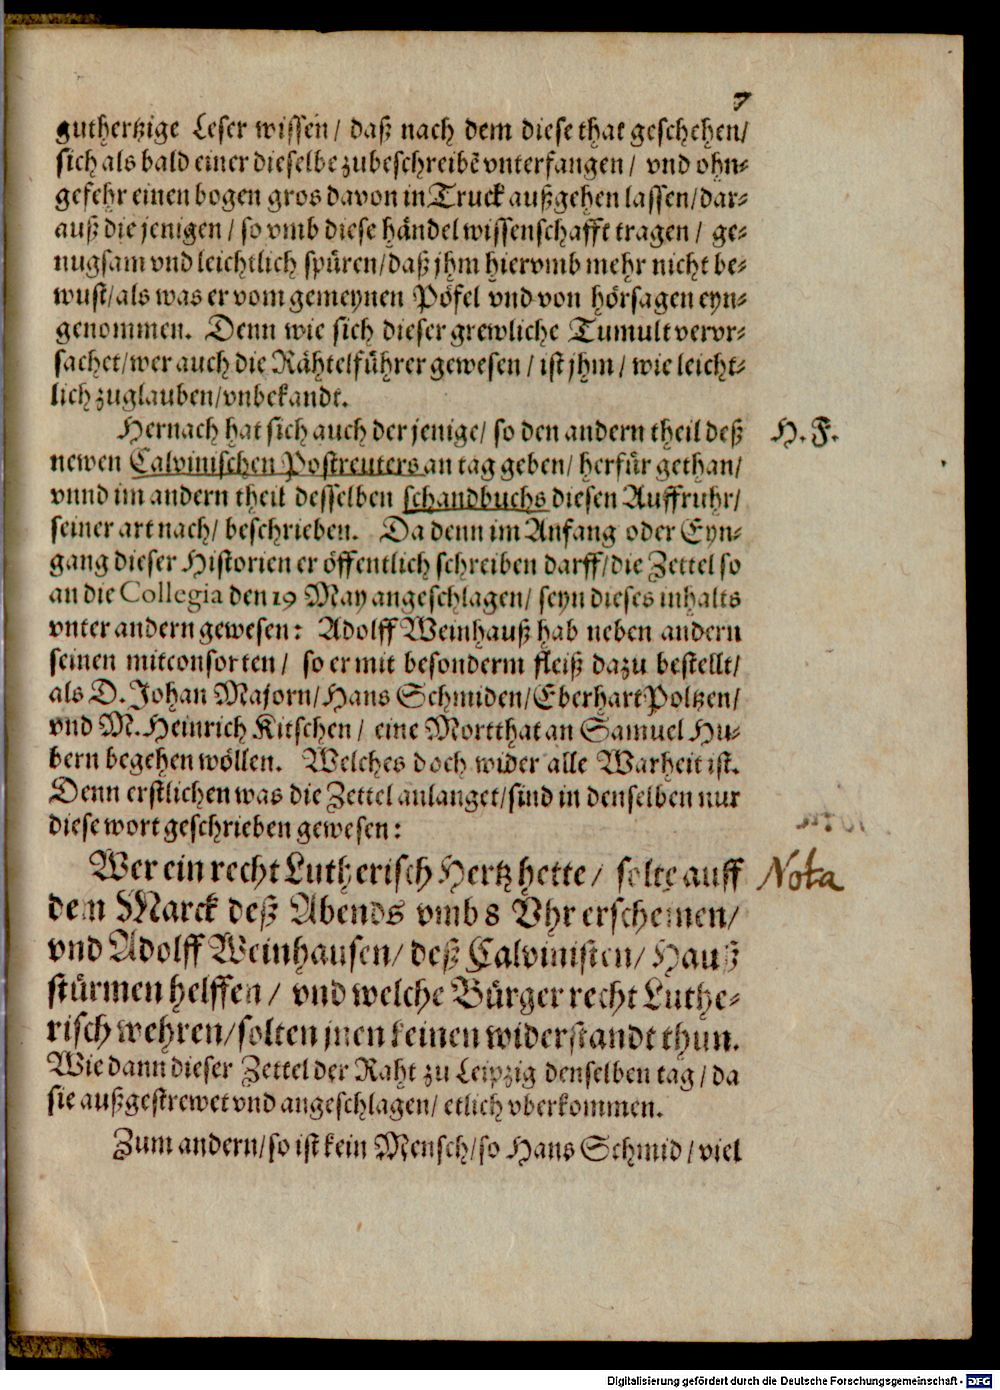 7
guthertzige Leser wissen/ daß nach dem diese that geschehen/
sich als bald einer dieselbe zubeschreibē vnterfangen/ vnd ohn-
gefehr einen bogen gros davon in Truck außgehen lassen/dar-
auß die jenigen/ so vmb diese händel wissenschafft tragen/ ge-
nugsam vnd leichtlich spüren/daß jhm hiervmb mehr nicht be-
wust/als was er vom gemeynen Pöfel vnd von hörsagen eyn-
genommen. Denn wie sich dieser grewliche Tumult vervr-
sachet/wer auch die Rähtelführer gewesen/ ist jhm/ wie leicht-
lich zuglauben/vnbekandt.
Hernach hat sich auch der jenige/ so den andern theil deß H. F.
newen Calvinischen Postreuters an tag geben/ herfür gethan/
vnnd im andern theil desselben schandbuchs diesen Auffruhr/
seiner art nach/ beschrieben. Da denn im Anfang oder Eyn-
gang dieser Historien er öffentlich schreiben darff/die Zettel so
an die Collegia den 19 May angeschlagen/ seyn dieses inhalts
vnter andern gewesen: Adolff Weinhauß hab neben andern
seinen mitconsorten/ so er mit besonderm fleiß dazu bestellt/
als D. Johan Majorn/Hans Schmiden/Eberhart Poltzen/
vnd M. Heinrich Kitschen/ eine Mortthat an Samuel Hu-
bern begehen wöllen. Welches doch wider alle Warheit ist.
Denn erstlichen was die Zettel anlanget/sind in denselben nur
diese wort geschrieben gewesen:
Wer ein recht Lutherisch Hertz hette/ solte auff Nota
dem Marck deß Abends vmb 8 Vhr erscheinen/
vnd Adolff Weinhausen/ deß Calvinisten/ Hauß
stürmen helffen/ vnd welche Bürger recht Luthe-
risch wehren/solten jnen keinen widerstandt thun.
Wie dann dieser Zettel der Raht zu Leipzig denselben tag/ da
sie außgestrewet vnd angeschlagen/ etlich vberkommen.
Zum andern/so ist kein Mensch/so Hans Schmid/ viel
Digitalisierung gefördert durch die Deutsche Forschungsgemeinschaft - DFG